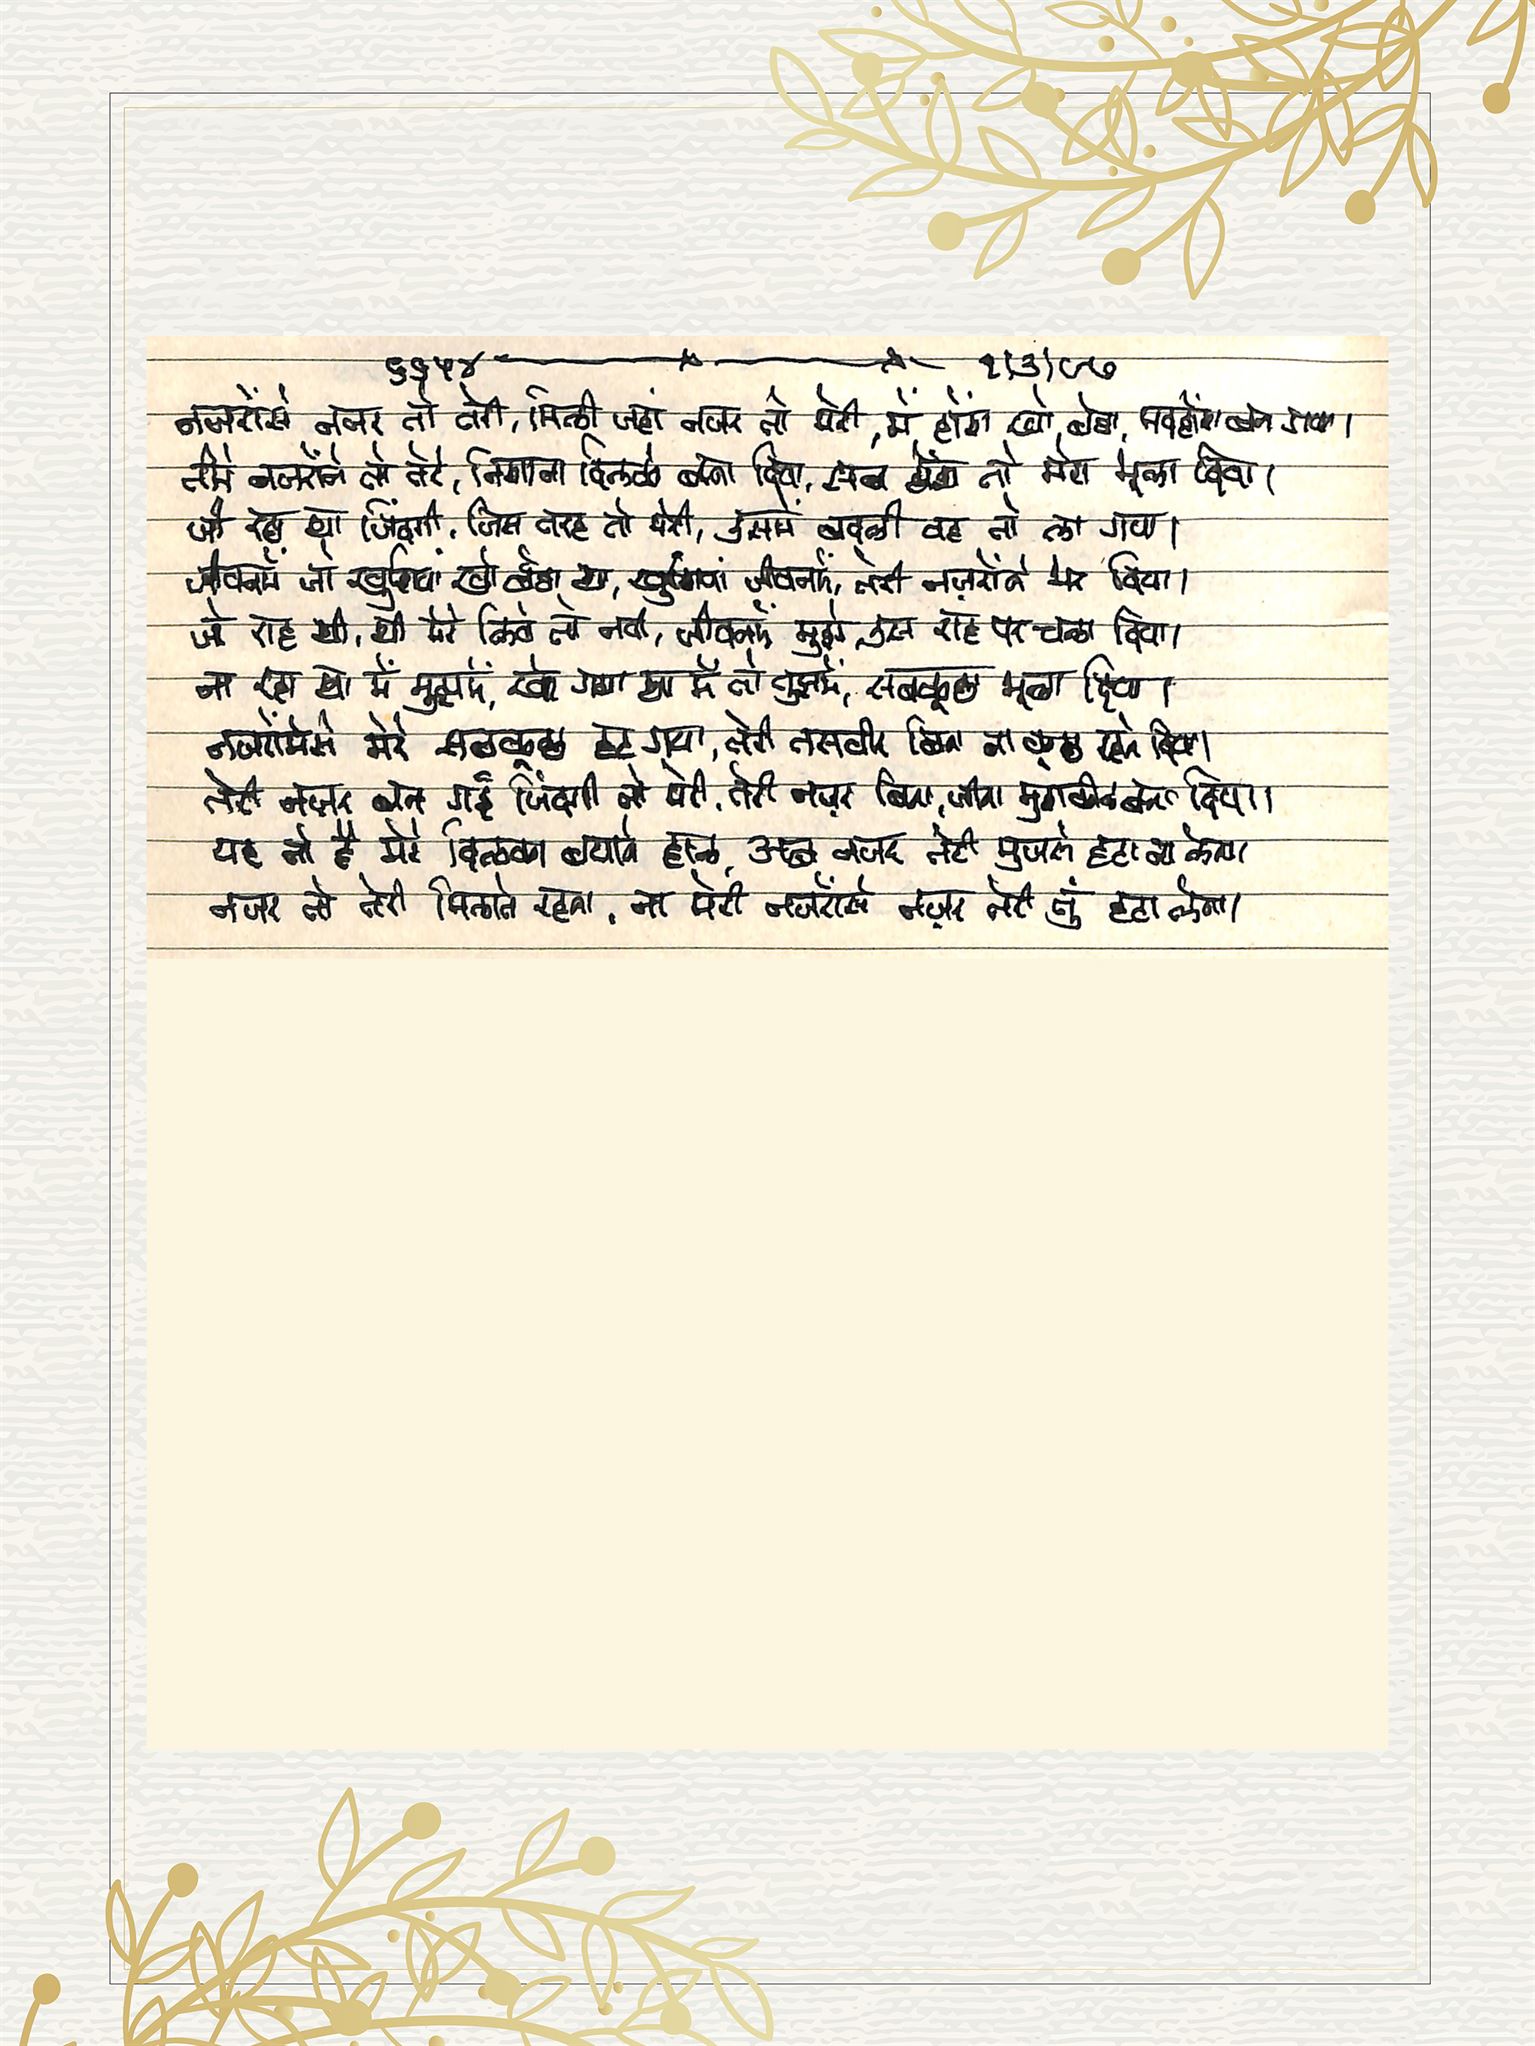 ६६५४ १/३/९७
नजरोंसे नजर तो तेरी, मिली जहां नजर तो मेरी, मैं होंश खो बैठा, मदहोंश बन गया।
तीरे नजरोंने तो तेरे, निशाना दिलको बना दिया, सब होंश तो मेरा भूला दिया।
जी रहा था जिंदगी, जिस तरह तो मेरी, उसमें बदली वह तो ला गया।
जीवनमें जो खुशियां खो बैठा था, खुशियां जीवनमें, तेरी नज़रोंने भर दिया।
जो राह थी, थी मेरे लिये तो नयी, जीवनमें मुझे उस राह पर चला दिया।
ना रहा था मैं मुझमें, खो गया था मैं तो तुझमें, सबकुछ भूला दिया।
नजरोंमेंसे मेरे सबकुछ हट गया, तेरी तसवीर बिना ना कुछ रहने दिया।
तेरी नज़र बन गई जिंदगी तो मेरी, तेरी नज़र बिना, जीना मुश्कील बना दिया।
यह तो है मेरे दिलका बयाने हाल, अब नजर तेरी मुजसे हटा ना लेना।
नजर तो तेरी मिलाते रहना, ना मेरी नजरोंसे नज़र तेरी तुं हटा लेना।